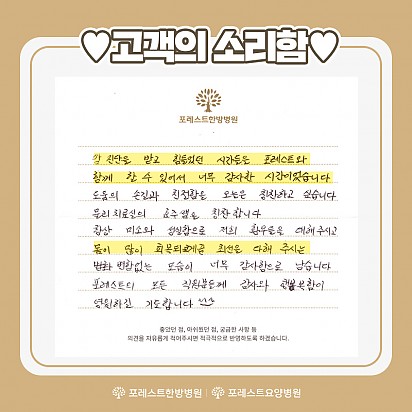 ♥고객의 소리함♥
포레스트한방병원
암 진단을 받고 힘들었던 시간들을 포레스트와
함께 할 수 있어서 너무 감사한 시간이었습니다
도움의 손길과 친절함을 오늘은 칭찬하고 싶습니다
물리치료실의 쌤을 칭찬합니다
항상 미소와 성실함으로 저희 환우들을 대해주시고
몸이 많이 회복되게끔 최선을 다해 주시는
변함없는 모습이 너무 감사함으로 남습니다
포레스트의 모든 직원분들께 감사와 행복함이
영원하길 기도합니다
좋았던 점, 아쉬웠던 점, 궁금한 사항 등
의견을 자유롭게 적어주시면 적극적으로 반영하도록 하겠습니다.
포레스트한방병원 | 포레스트요양병원